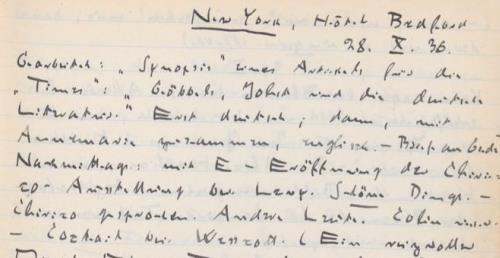 New York, Hotel Bedford
28. X. 36.
Gearbeitet: „Synopsis" eines Artikels für die
„Times": „Göbbels, Johst und die deutsche
Literatur." Erst deutsch; dann, mit
Annemarie zusammen, englisch. – Brief an
Nachmittags: mit E – Eröffnung der Chiri-
co-Ausstellung bei Levy. Schöne Dinge. –
Chirico gesprochen. Andre Leute.
– Cocktail bei Wescott. (Ein reizvoller